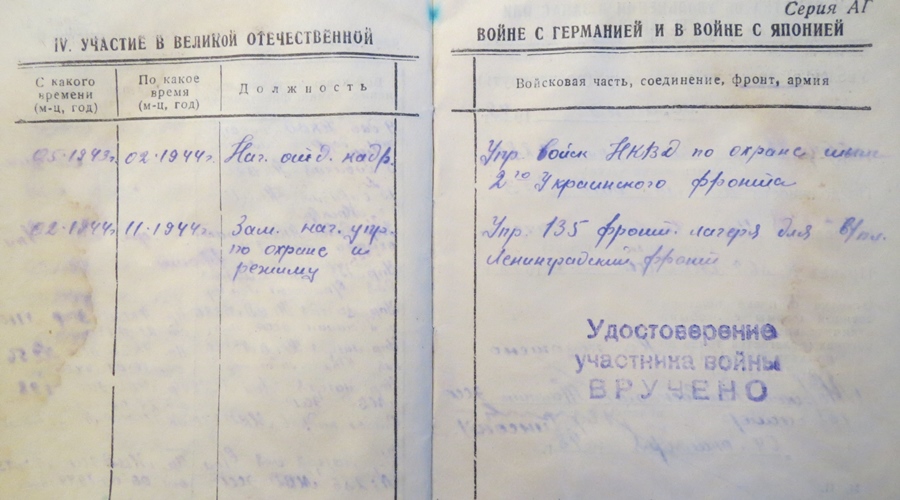 Серия АГ
IV. УЧАСТИЕ В ВЕЛИКОЙ ОТЕЧЕСТВЕННОЙ
ВОЙНЕ С ГЕРМАНИЕЙ И В ВОЙНЕ С ЯПОНИЕЙ
С какого времени (м-ц, год)
По какое время (м-ц, год)
Должность
Войсковая часть, соединение, фронт, армия
05.1943г.
02.1944г.
Нач. отд. кадр.
Упр. войск НКВД по охране
2го Украинского фронта
02.1944г.
11.1944г.
Зам. нач. упр.
по охране и
режиму
Упр. 135 фронт. лагеря для в/пл.
Ленинградский фронт
Удостоверение
участника войны
ВРУЧЕНО